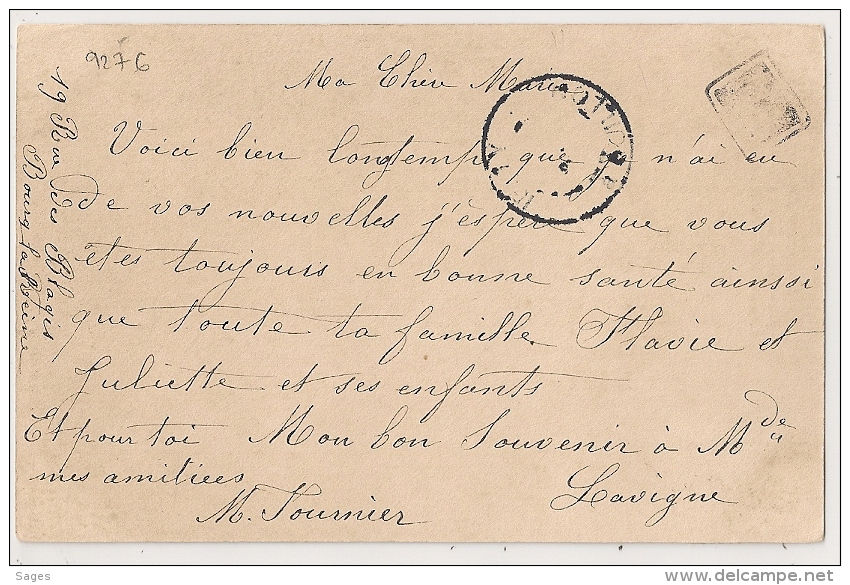 9276
Ma Chère Marie
Voici bien longtemp que n'ai eu
de vos nouvelles j'espère que vous
êtes toujours en bonne santé ainssi
que toute ta famille Flavie et
Juliette et ses enfants
Et pour toi Mon bon Souvenir à M^de
mes amitiees Lavigne
M. Fournier
19 Rue des Blagis
Bourg la Reine
Sages
www.delcampe.net